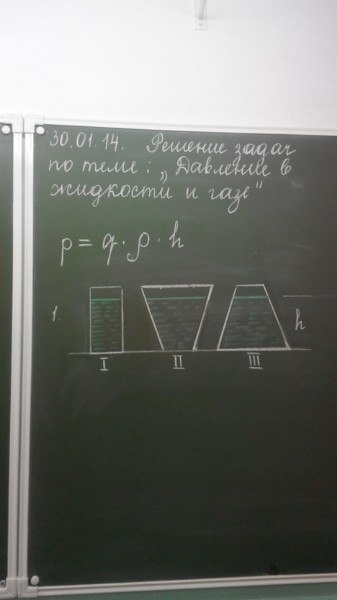 30.01.14. Решение задач
по теме: „Давление в
жидкости и газе"
p = g · ρ · h
1.
h
I II III